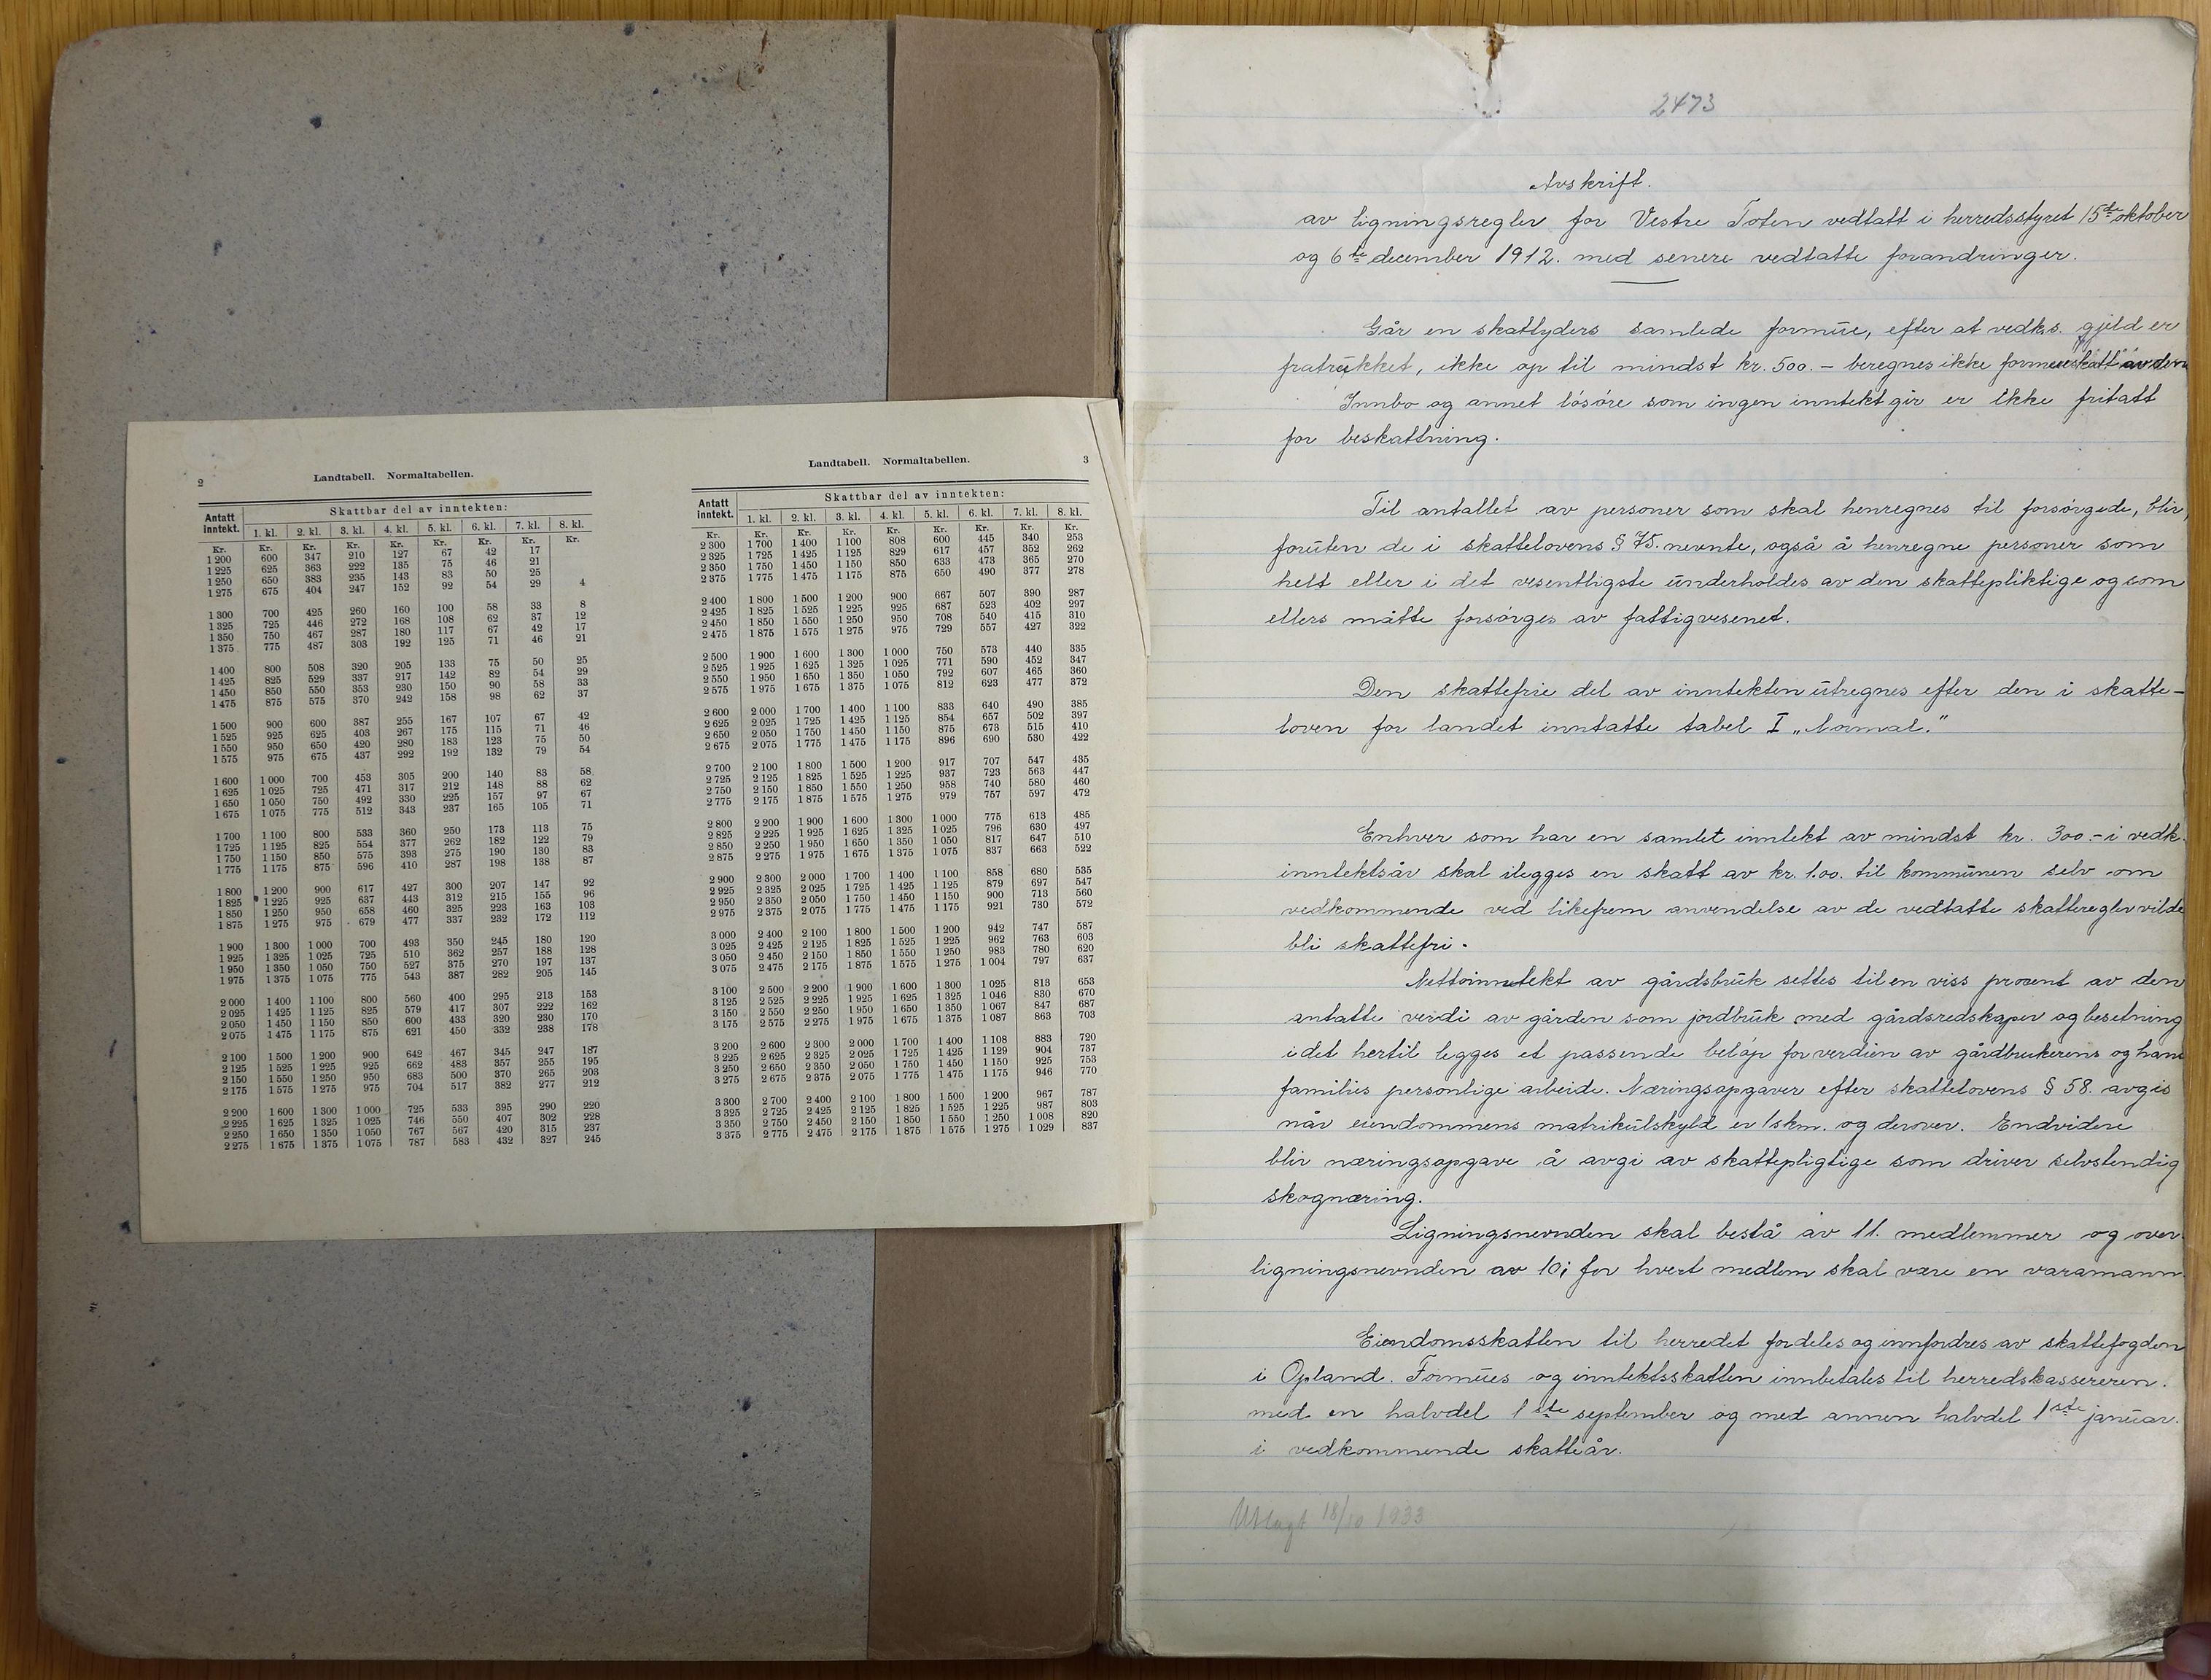 2
Landtabell. Normaltabellen.
Antatt inntekt. Skattbar del av inntekten:
1. kl. 2. kl. 3. kl. 4. kl. 5. kl. 6. kl. 7. kl. 8. kl.
Kr. Kr. Kr. Kr. Kr. Kr. Kr. Kr. Kr.
1 200 600 347 210 127 67 42 17
1 225 625 363 222 135 75 46 21
1 250 650 383 235 143 83 50 25
1 275 675 404 247 152 92 54 29 4
1 300 700 425 260 160 100 58 33 8
1 325 725 446 272 168 108 62 37 12
1 350 750 467 287 180 117 67 42 17
1 375 775 487 303 192 125 71 46 21
1 400 800 508 320 205 133 75 50 25
1 425 825 529 337 217 142 82 54 29
1 450 850 550 353 230 150 90 58 33
1 475 875 575 370 242 158 98 62 37
1 500 900 600 387 255 167 107 67 42
1 525 925 625 403 267 175 115 71 46
1 550 950 650 420 280 183 123 75 50
1 575 975 675 437 292 192 132 79 54
1 600 1 000 700 453 305 200 140 83 58
1 625 1 025 725 471 317 212 148 88 62
1 650 1 050 750 492 330 225 157 97 67
1 675 1 075 775 512 343 237 165 105 71
1 700 1 100 800 533 360 250 173 113 75
1 725 1 125 825 554 377 262 182 122 79
1 750 1 150 850 575 393 275 190 130 83
1 775 1 175 875 596 410 287 198 138 87
1 800 1 200 900 617 427 300 207 147 92
1 825 1 225 925 637 443 312 215 155 96
1 850 1 250 950 658 460 325 223 163 103
1 875 1 275 975 679 477 337 232 172 112
1 900 1 300 1 000 700 493 350 245 180 120
1 925 1 325 1 025 725 510 362 257 188 128
1 950 1 350 1 050 750 527 375 270 197 137
1 975 1 375 1 075 775 543 387 282 205 145
2 000 1 400 1 100 800 560 400 295 213 153
2 025 1 425 1 125 825 579 417 307 222 162
2 050 1 450 1 150 850 600 433 320 230 170
2 075 1 475 1 175 875 621 450 332 238 178
2 100 1 500 1 200 900 642 467 345 247 187
2 125 1 525 1 225 925 662 483 357 255 195
2 150 1 550 1 250 950 683 500 370 265 203
2 175 1 575 1 275 975 704 517 382 277 212
2 200 1 600 1 300 1 000 725 533 395 290 220
2 225 1 625 1 325 1 025 746 550 407 302 228
2 250 1 650 1 350 1 050 767 567 420 315 237
2 275 1 675 1 375 1 075 787 583 432 327 245
Landtabell. Normaltabellen.
3
Antatt inntekt. Skattbar del av inntekten:
1. kl. 2. kl. 3. kl. 4. kl. 5. kl. 6. kl. 7. kl. 8. kl.
Kr. Kr. Kr. Kr. Kr. Kr. Kr. Kr. Kr.
2 300 1 700 1 400 1 100 808 600 445 340 253
2 325 1 725 1 425 1 125 829 617 457 352 262
2 350 1 750 1 450 1 150 850 633 473 365 270
2 375 1 775 1 475 1 175 875 650 490 377 278
2 400 1 800 1 500 1 200 900 667 507 390 287
2 425 1 825 1 525 1 225 925 687 523 402 297
2 450 1 850 1 550 1 250 950 708 540 415 310
2 475 1 875 1 575 1 275 975 729 557 427 322
2 500 1 900 1 600 1 300 1 000 750 573 440 335
2 525 1 925 1 625 1 325 1 025 771 590 452 347
2 550 1 950 1 650 1 350 1 050 792 607 465 360
2 575 1 975 1 675 1 375 1 075 812 623 477 372
2 600 2 000 1 700 1 400 1 100 833 640 490 385
2 625 2 025 1 725 1 425 1 125 854 657 502 397
2 650 2 050 1 750 1 450 1 150 875 673 515 410
2 675 2 075 1 775 1 475 1 175 896 690 530 422
2 700 2 100 1 800 1 500 1 200 917 707 547 435
2 725 2 125 1 825 1 525 1 225 937 723 563 447
2 750 2 150 1 850 1 550 1 250 958 740 580 460
2 775 2 175 1 875 1 575 1 275 979 757 597 472
2 800 2 200 1 900 1 600 1 300 1 000 775 613 485
2 825 2 225 1 925 1 625 1 325 1 025 796 630 497
2 850 2 250 1 950 1 650 1 350 1 050 817 647 510
2 875 2 275 1 975 1 675 1 375 1 075 837 663 522
2 900 2 300 2 000 1 700 1 400 1 100 858 680 535
2 925 2 325 2 025 1 725 1 425 1 125 879 697 547
2 950 2 350 2 050 1 750 1 450 1 150 900 713 560
2 975 2 375 2 075 1 775 1 475 1 175 921 730 572
3 000 2 400 2 100 1 800 1 500 1 200 942 747 587
3 025 2 425 2 125 1 825 1 525 1 225 962 763 603
3 050 2 450 2 150 1 850 1 550 1 250 983 780 620
3 075 2 475 2 175 1 875 1 575 1 275 1 004 797 637
3 100 2 500 2 200 1 900 1 600 1 300 1 025 813 653
3 125 2 525 2 225 1 925 1 625 1 325 1 046 830 670
3 150 2 550 2 250 1 950 1 650 1 350 1 067 847 687
3 175 2 575 2 275 1 975 1 675 1 375 1 087 863 703
3 200 2 600 2 300 2 000 1 700 1 400 1 108 883 720
3 225 2 625 2 325 2 025 1 725 1 425 1 129 904 737
3 250 2 650 2 350 2 050 1 750 1 450 1 150 925 753
3 275 2 675 2 375 2 075 1 775 1 475 1 175 946 770
3 300 2 700 2 400 2 100 1 800 1 500 1 200 967 787
3 325 2 725 2 425 2 125 1 825 1 525 1 225 987 803
3 350 2 750 2 450 2 150 1 850 1 550 1 250 1 008 820
3 375 2 775 2 475 2 175 1 875 1 575 1 275 1 029 837
2473
Avskrift.
av ligningsregler for Vestre Toten vedtatt i herredsstyret 15de oktober
og 6te december 1912. med senere vedtatte forandringer.
Går en skattyders samlede formue, efter at vedks. gjeld er
fratrukket, ikke op til mindst kr. 500.- beregnes ikke formueskatt av den
Innbo og annet løsøre som ingen inntekt gir er ikke fritatt
for beskattning.
Til antallet av personer som skal henregnes til forsørgede, blir,
foruten de i skattelovens § 75. nevnte, også å henregne personer som
helt eller i det vesentligste underholdes av den skattepliktige og som
ellers måtte forsørges av fattigvesenet.
Den skattefrie del av inntekten utregnes efter den i skatte-
loven for landet inntatte tabel I „Normal."
Enhver som har en samlet inntekt av mindst kr. 300.- i vedk.
inntektsår skal ilegges en skatt av kr. 1.00. til kommunen selv om
vedkommende ved likefrem anvendelse av de vedtatte skatteregler vilde
bli skattefri.
Nettoinntekt av gårdsbruk settes til en viss procent av den
antatte verdi av gården som jordbruk med gårdsredskaper og besetning
idet hertil legges et passende beløp for verdien av gårdbrukerens og hans
families personlige arbeide. Næringsopgaver efter skattelovens § 58. avgis
når eiendommens matrikulskyld er 1 skm. og derover. Endvidere
blir næringsopgave å avgi av skattepligtige som driver selvstendig
skognæring.
Ligningsnevnden skal bestå av 11. medlemmer og over
ligningsnevnden av 10; for hvert medlem skal være en varamann.
Eiendomsskatten til herredet fordeles og innfordres av skattefogden
i Opland. Formues og inntektsskatten innbetales til herredskassereren.
med en halvdel 1ste september og med annen halvdel 1ste januar.
i vedkommende skatteår.
Utlagt 18/10 1933